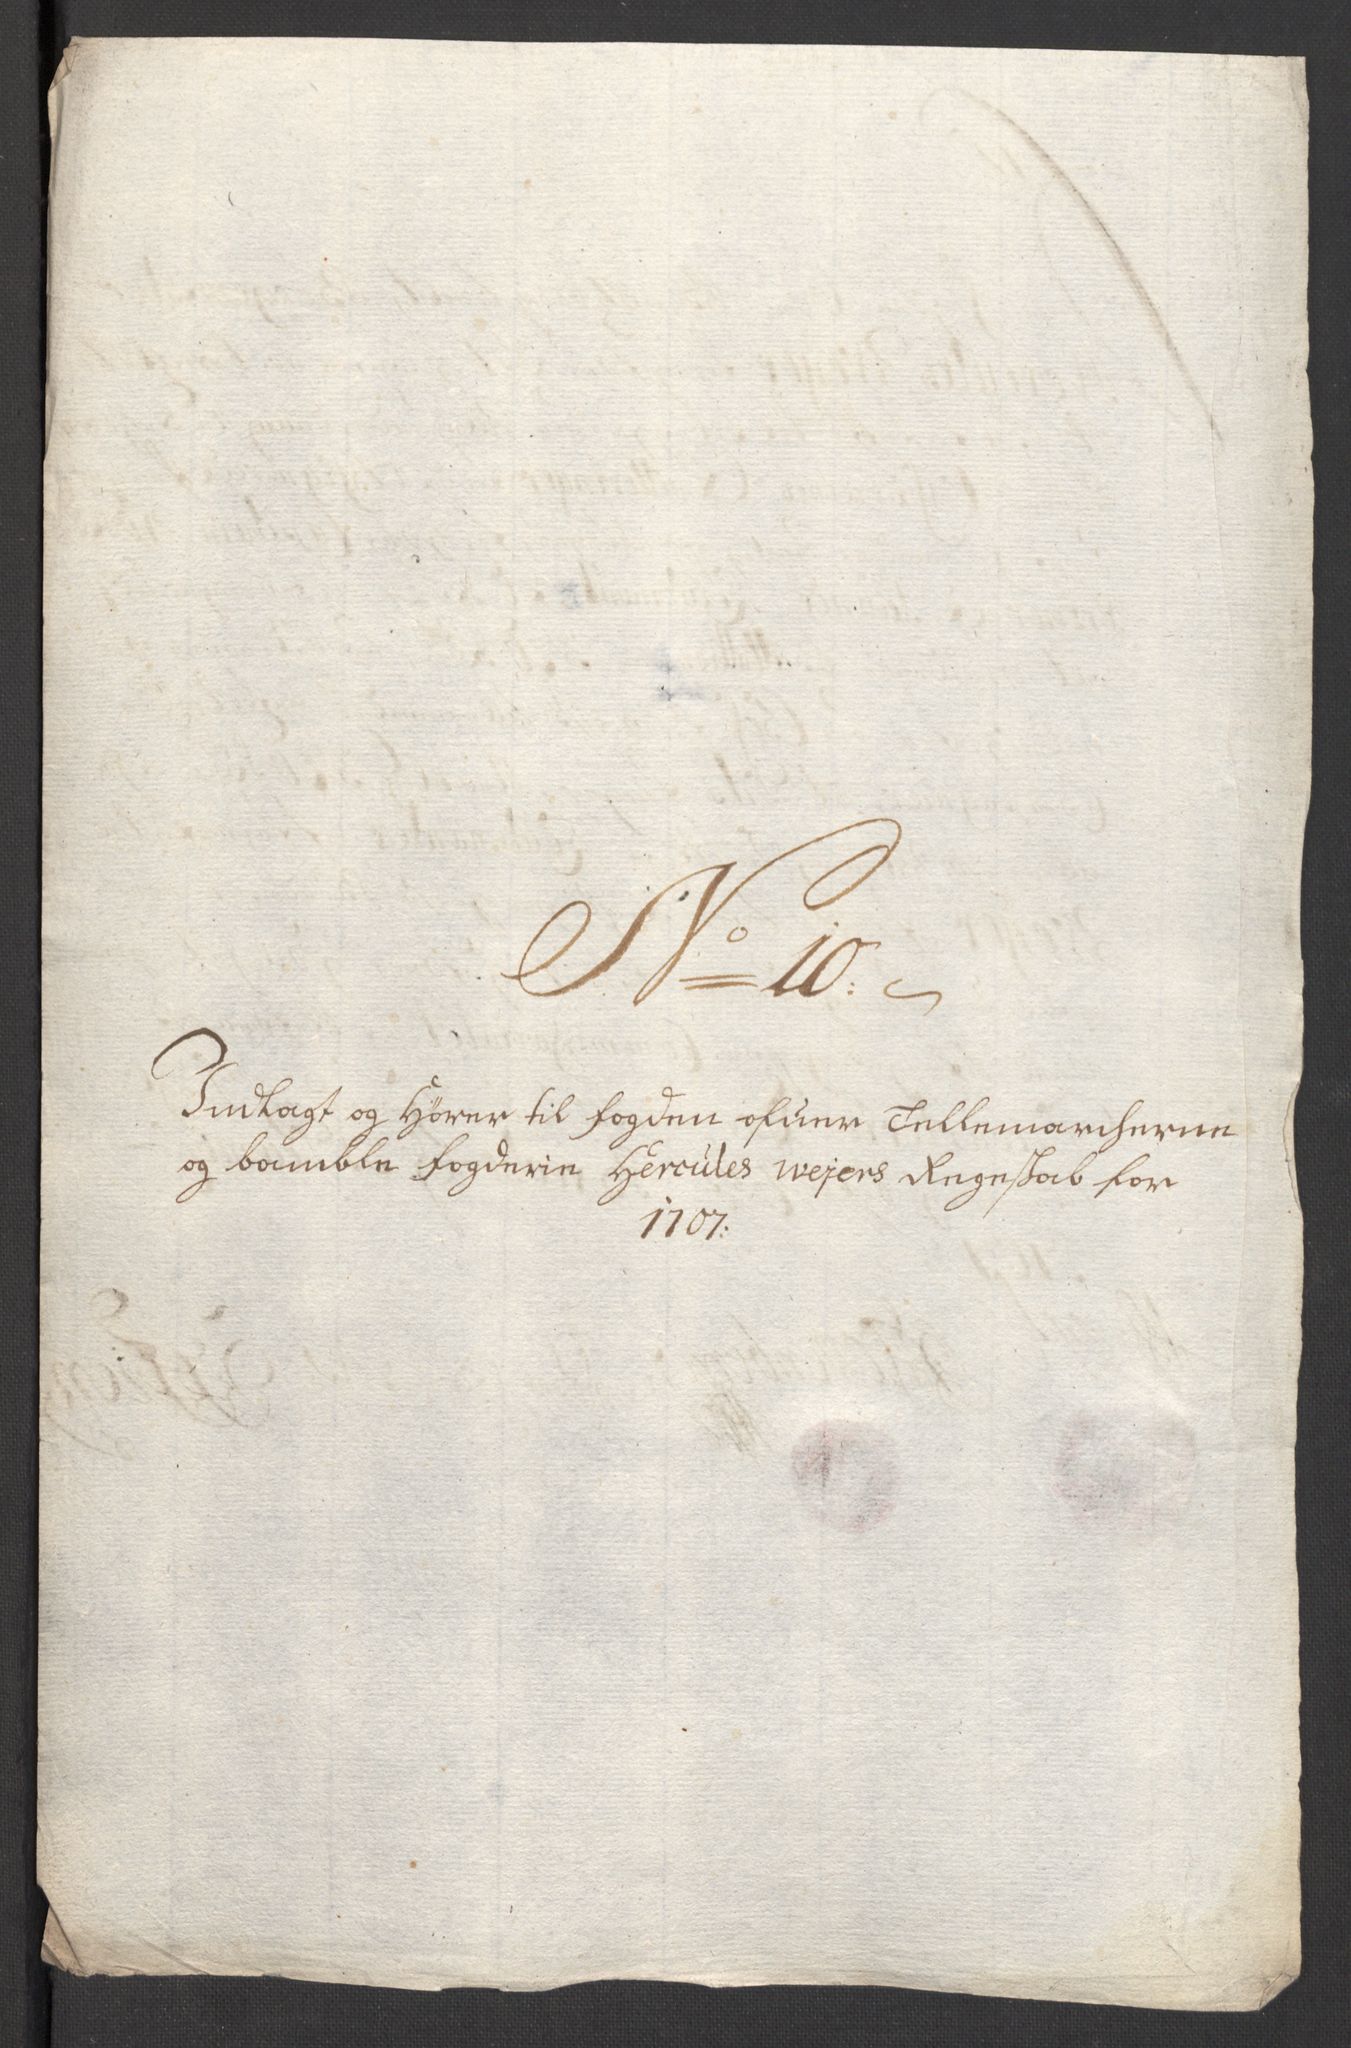 No 10.
Indlagt og Hörer til fogden ofuer Tellemarcherne
og bamble fogderie Hercules wejers Regeskab for
1707: